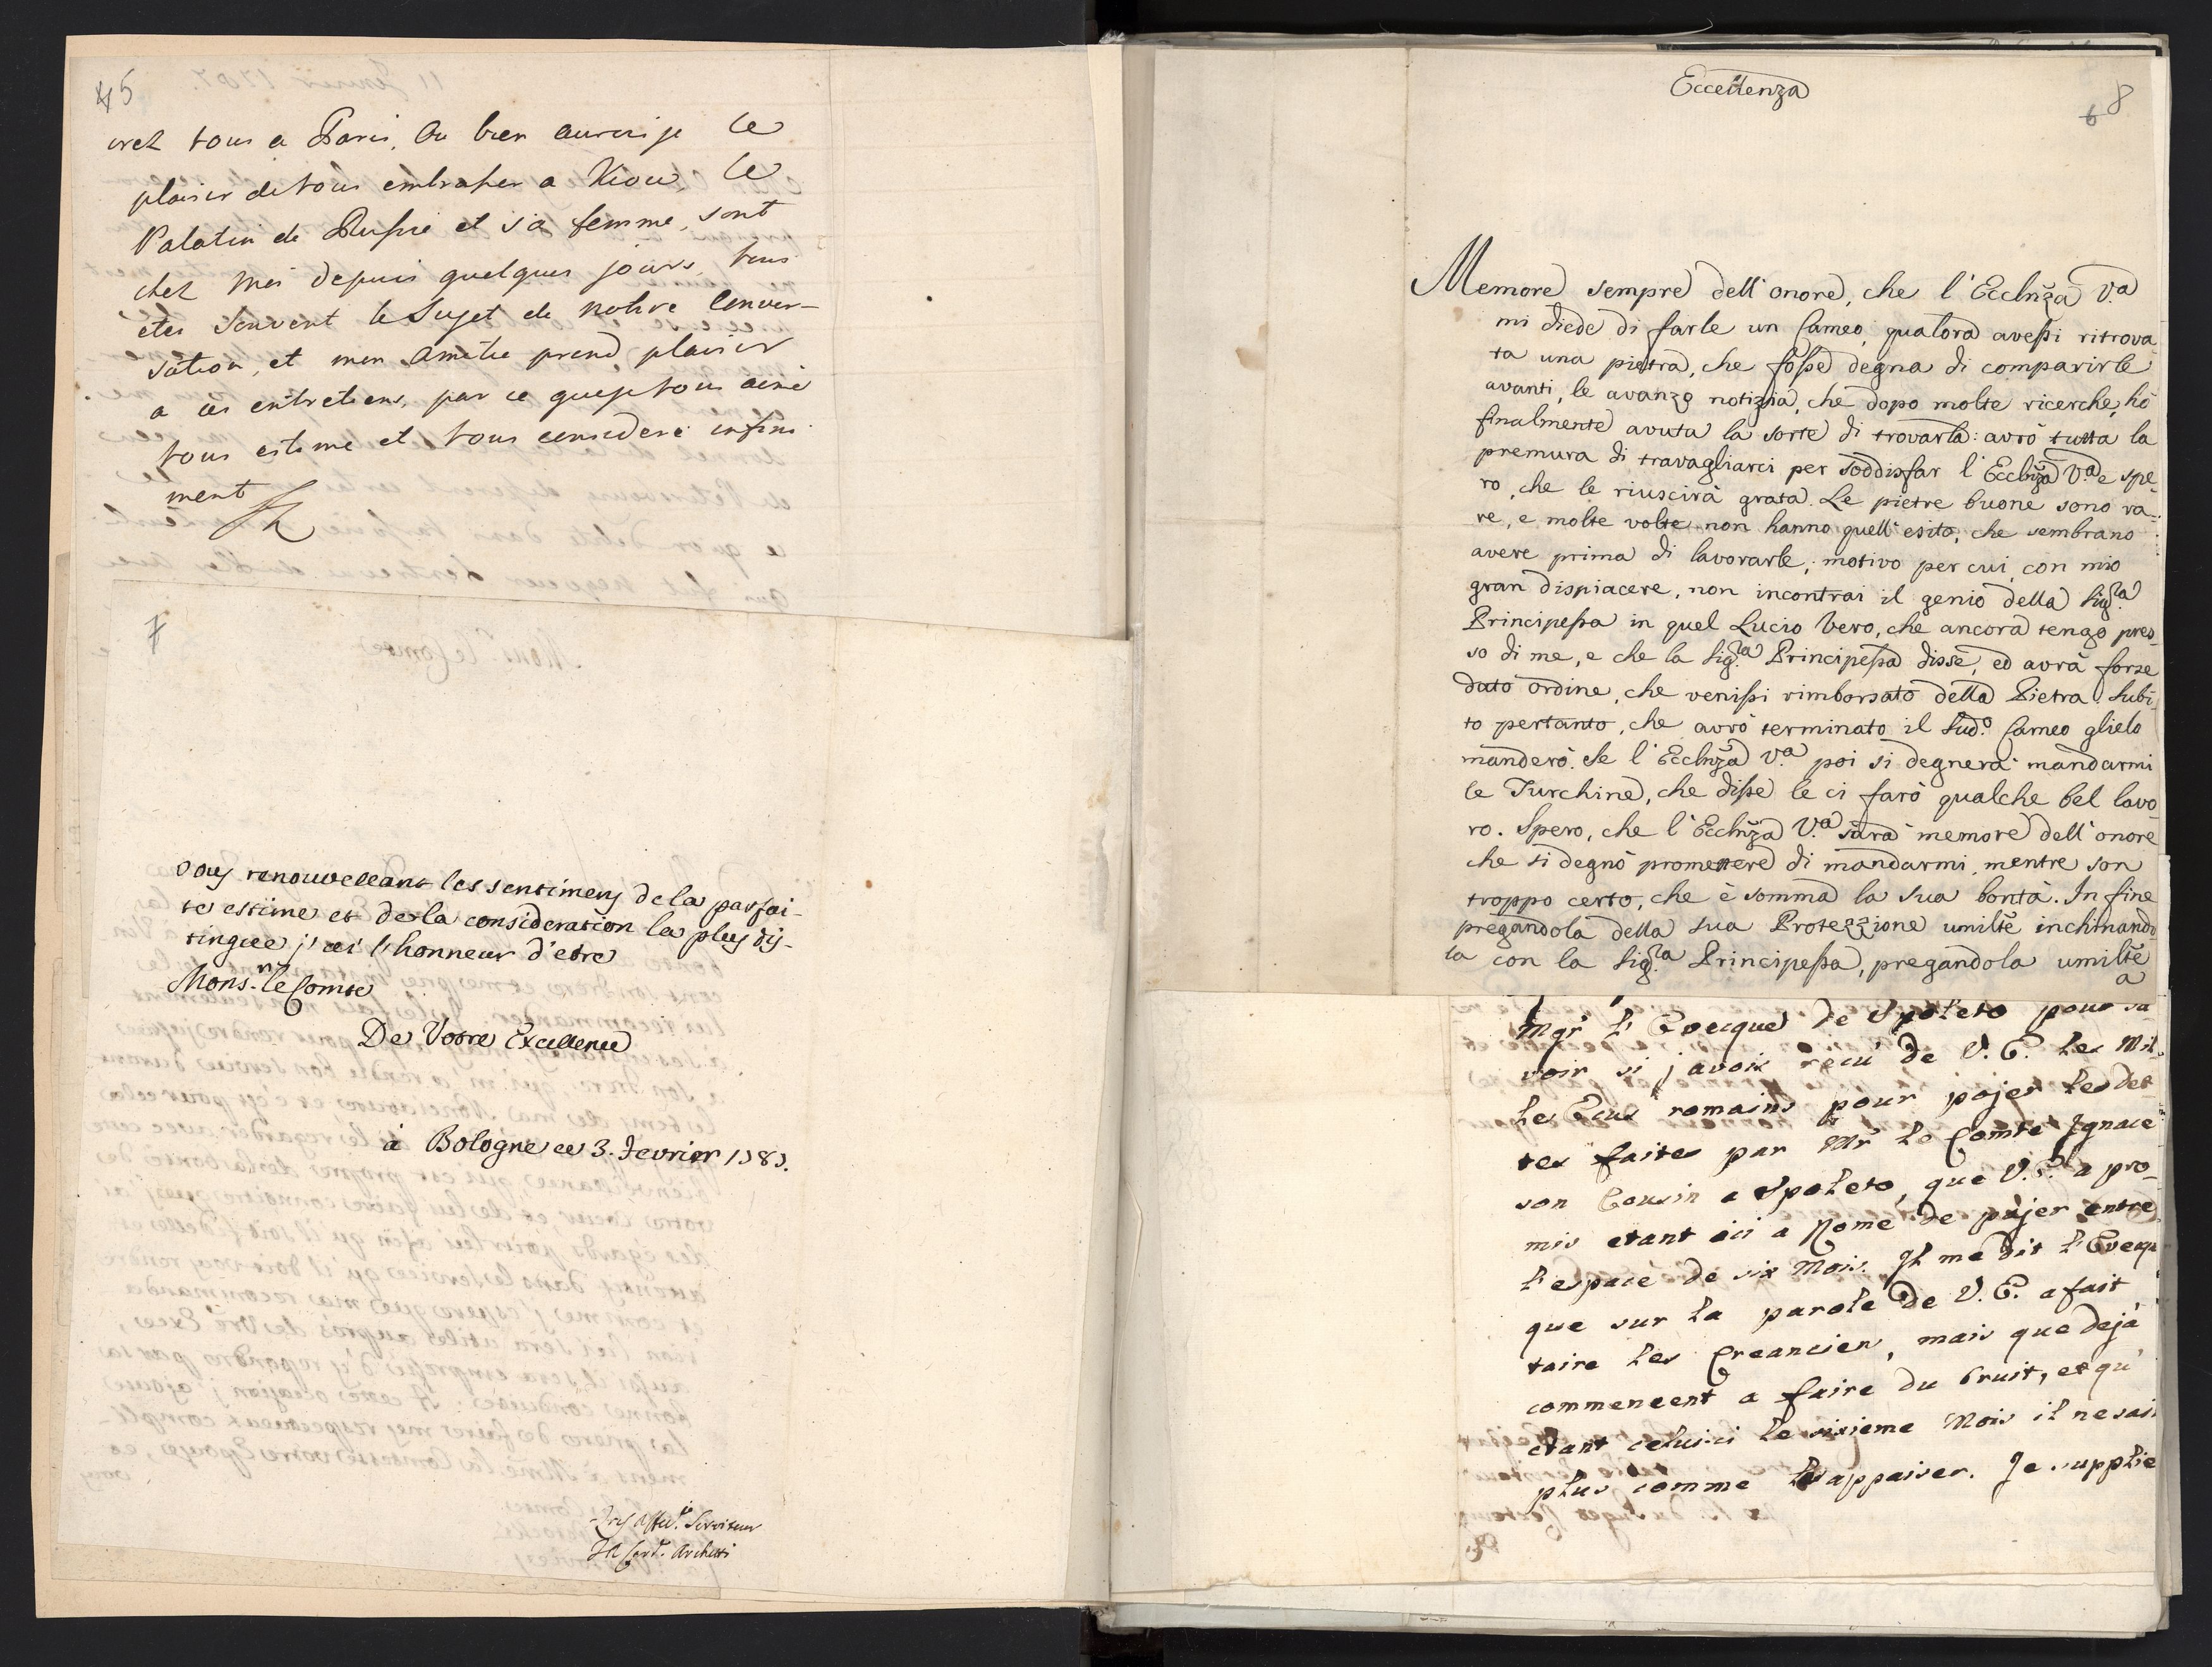 45
irez vous a Paris, Ou bien aurai je le
plaisir de vous embrasser a Kiow, le
Palatin de Russie et sa femme, sont
chez moi depuis quelques jours, vous
etes souvent le Sujet de nothre Conver-
sation, et mon Amétie prend plaisir
a ces entretiens, par ce que je vous aime
vous estime et vous considere infini
ment
7
vous renouvellant les sentimens de la parfai-
te estime et de la consideration la plus dis-
tinguée j'ai l'honneur d'etre
Mons.r le Comte
De Votre Excellence
à Bologne ce 3. Fevrier 1787.
Tres Aff.né Serviteur
Le Card. Archetti
Eccellenza
6 8
Memore sempre dell'onore, che l'Ecclnza V.a
mi diede di farle un Cameo, qualora avessi ritrova-
ta una pietra, che fosse degna di comparirle
avanti, le avanzo notizia, che dopo molte ricerche, hò
finalmente avuta la sorte di trovarla: avrò tutta la
premura di travagliarci per soddisfar l'Ecclnza V.a e spe-
ro, che le riuscirà grata. Le pietre buone sono ra-
re, e molte volte non hanno quell'esito, che sembrano
avere prima di lavorarle; motivo per cui, con mio
gran dispiacere, non incontrai il genio della Sig.ra
Principessa in quel Lucio Vero, che ancora tengo pres-
so di me, e che la Sig.ra Principessa disse, ed avrà forse
dato ordine, che venissi rimborsato della Pietra. Subi-
to pertanto, che avrò terminato il Sud.o Cameo glielo
manderò. Se l'Ecclnza V.a poi si degnerà mandarmi
le Turchine, che disse le ci farò qualche bel lavo-
ro. Spero, che l'Ecclnza V.a sarà memore dell'onore
che si degnò promettere di mandarmi, mentre son
troppo certo, che è somma la sua bontà. In fine
pregandola della sua Protezzione umilte inchinando-
la con la Sig.ra Principessa, pregandola umilte
a
Mgr l'Evecque de Spoleto pour sa-
voir si j'avois reçu de V. E. les Mil-
les Ecus romains pour pajer les det-
tes faites par Mr le Comte Ignace
son Cousin a Spoleto, que V. E. a pro-
mis etant ici a Rome de pajer entre
l'espace de six Mois. Il me dit l'Evecque
que sur la parole de V. E. a fait
taire les Creancien, mais que dejà
commencent a faire du bruit, et qu'
etant celui-ci le sixieme Mois il ne sait
plus comme les appaiser. Je supplie